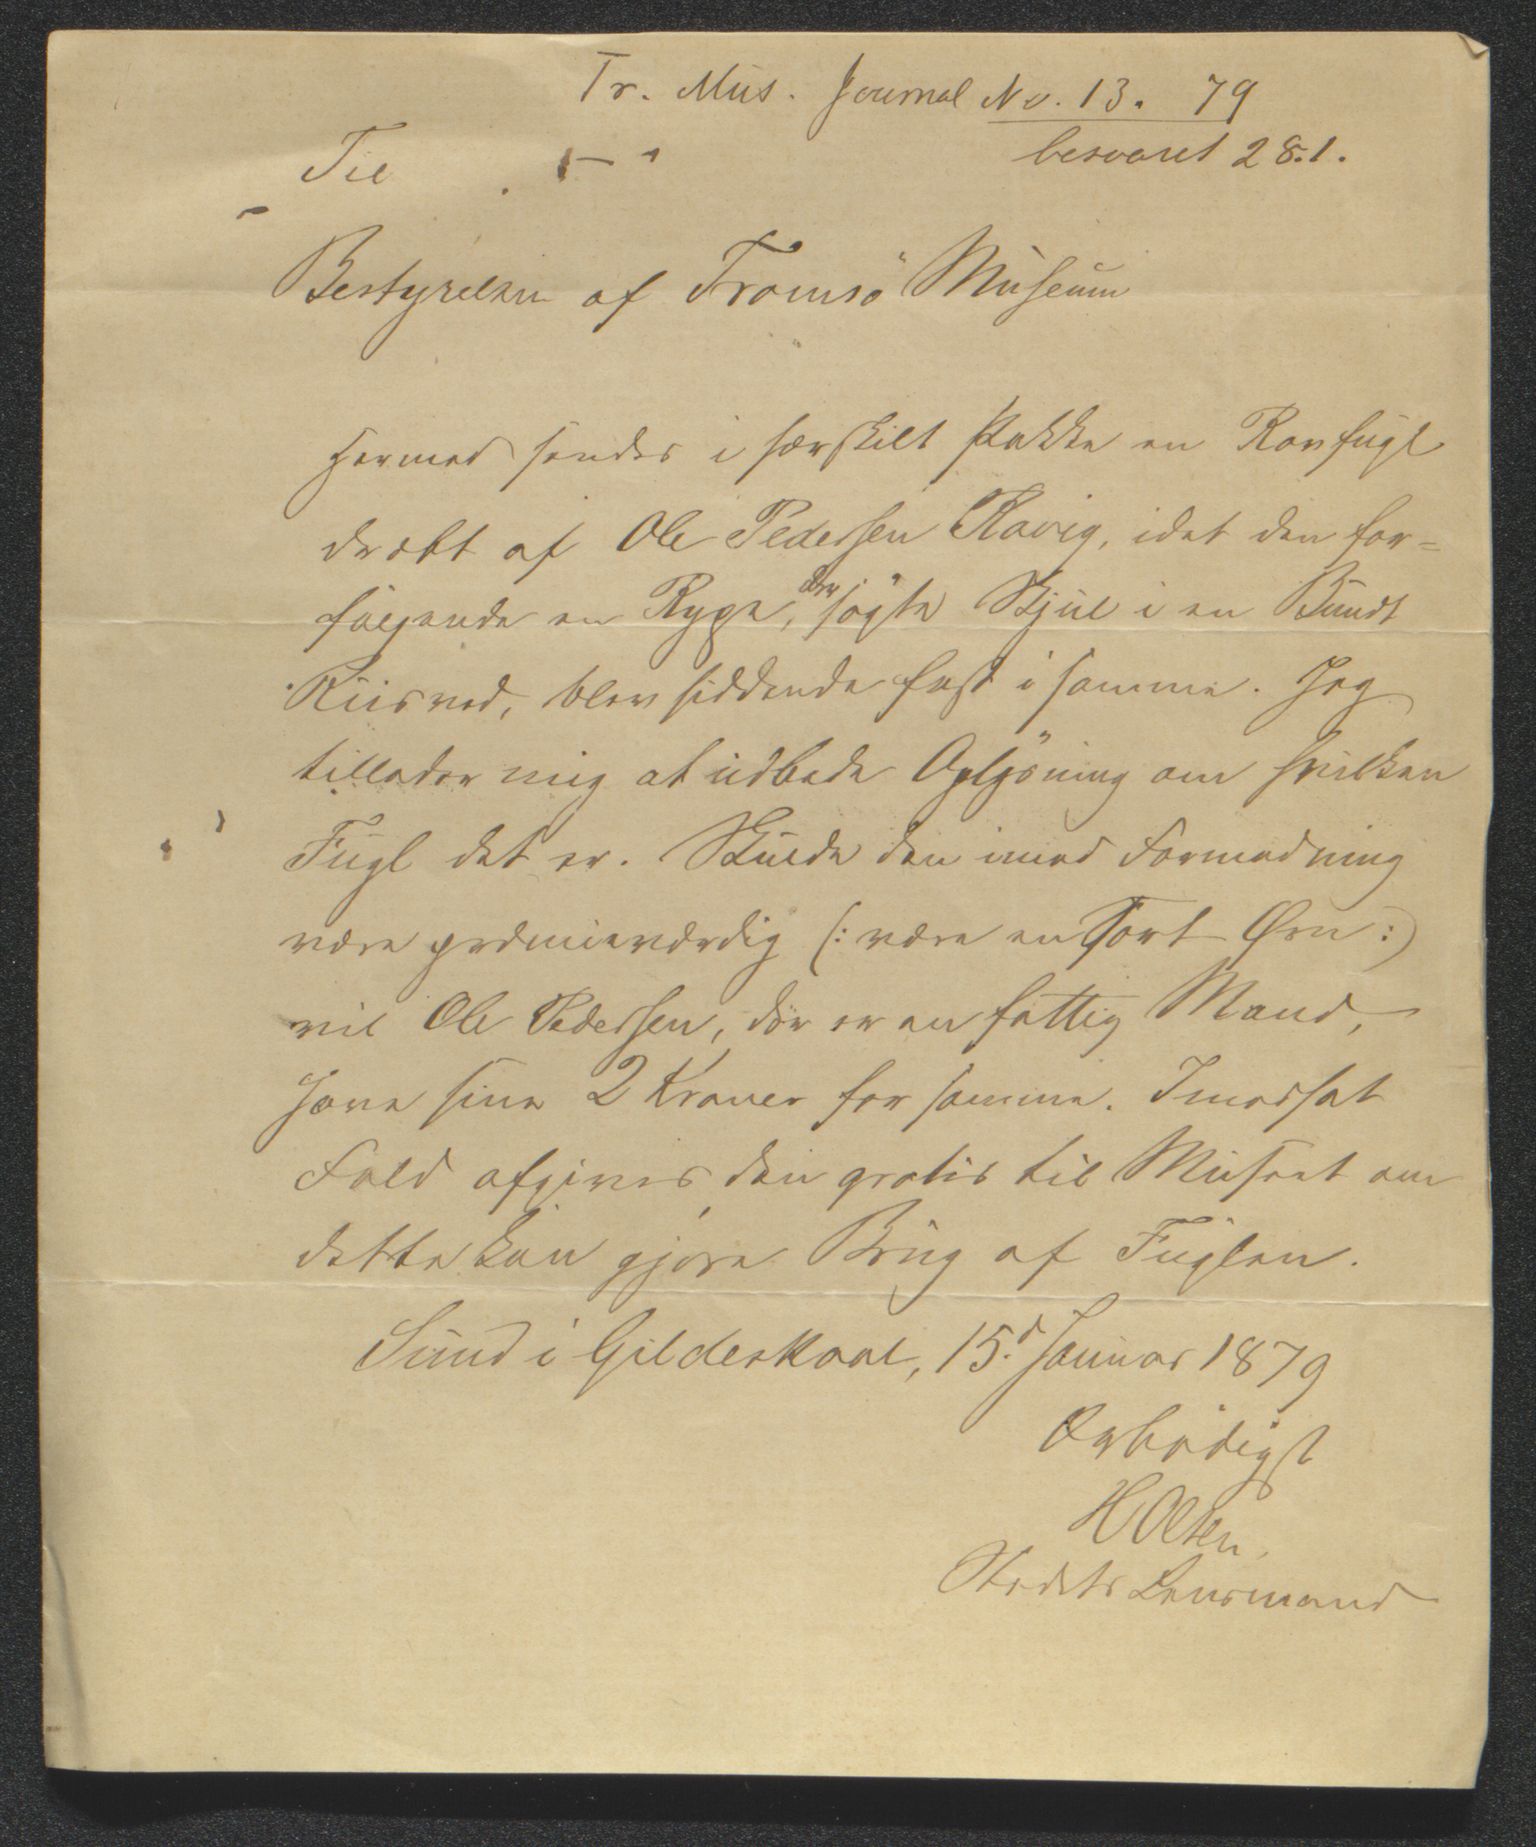 Tr. Mus. Journal No. 13. 79
besvaret 28.1.
Til
Bestyrelsen af Tromsö Museum
Hermed sendes i særskilt Pakke en Rovfugl
dræbt af Ole Pedersen Ravig, idet den for=
følgende en Rype, der søgte Skjul i en Bundt
Riisved, blev siddende fast i samme. Jeg
tillader mig at udbede Oplysning om hvilken
Fugl det er. Skulde den imod Formodning
være præmieværdig (: være en Sort Ørn :)
vil Ole Pedersen, der er en fattig Mand,
have sine 2 Kroner for samme. I modsat
Fald afgives den gratis til Museet om
dette kan gjøre Brug af Fuglen.
Sund i Gildeskaal, 15.d Januar 1879
Ærbødigst
H Olsen,
Stedets Lensmand